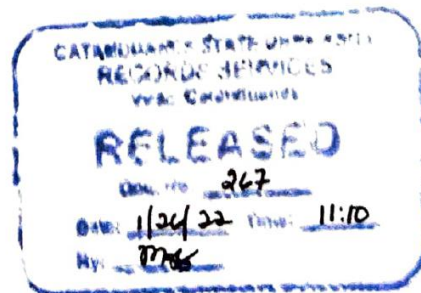 CATANDUANES STATE UNIVERSITY
RECORDS SERVICES
Virac Catanduanes
RELEASED
Doc. No. 267
Date: 1/26/22 Time: 11:10
By: